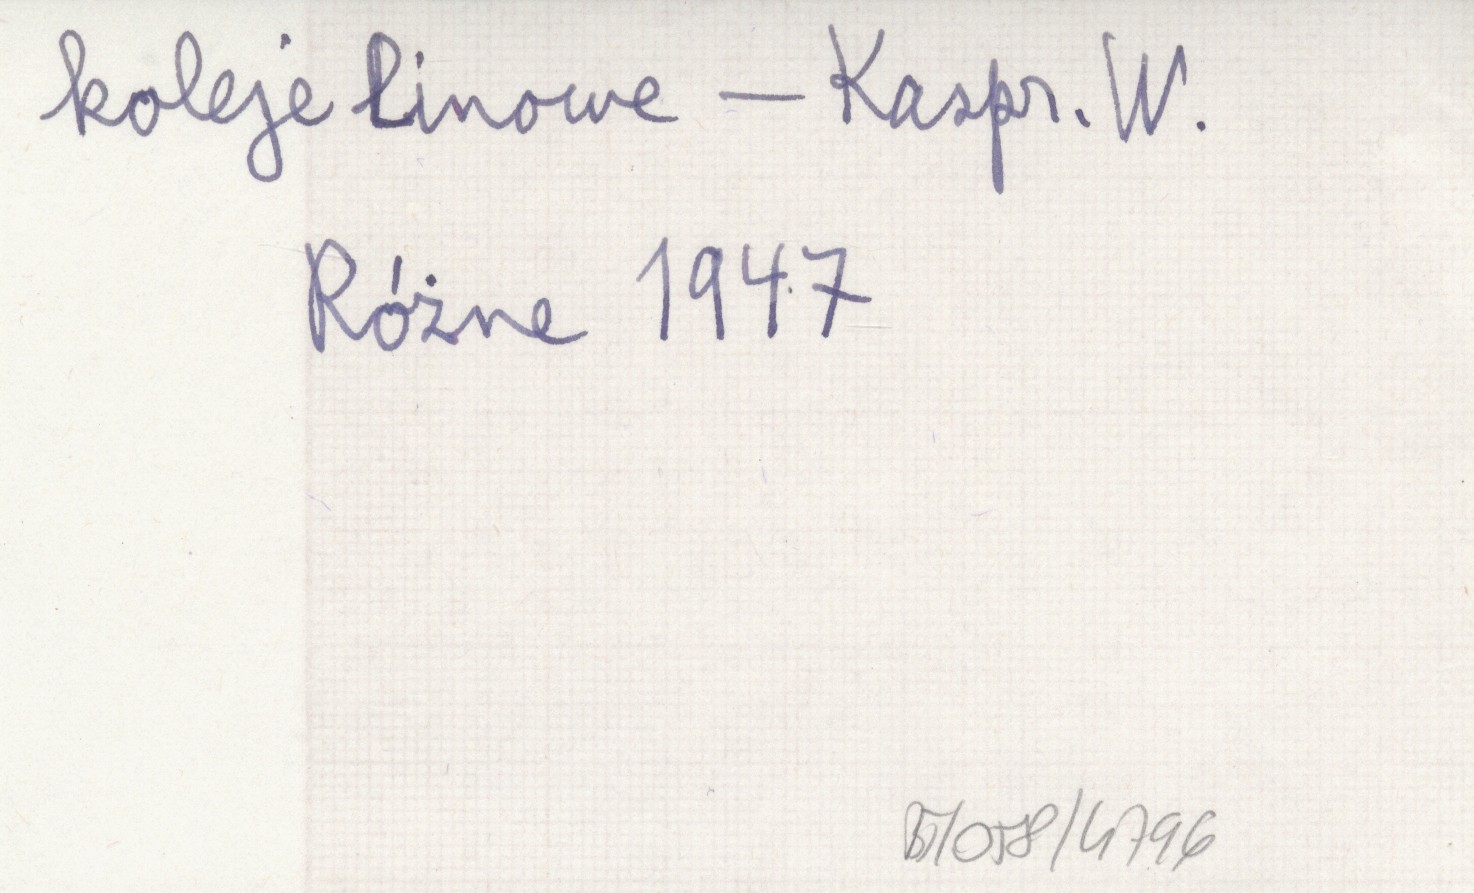 koleje linowe — Kaspr. W.
Różne 1947
B/058/4796